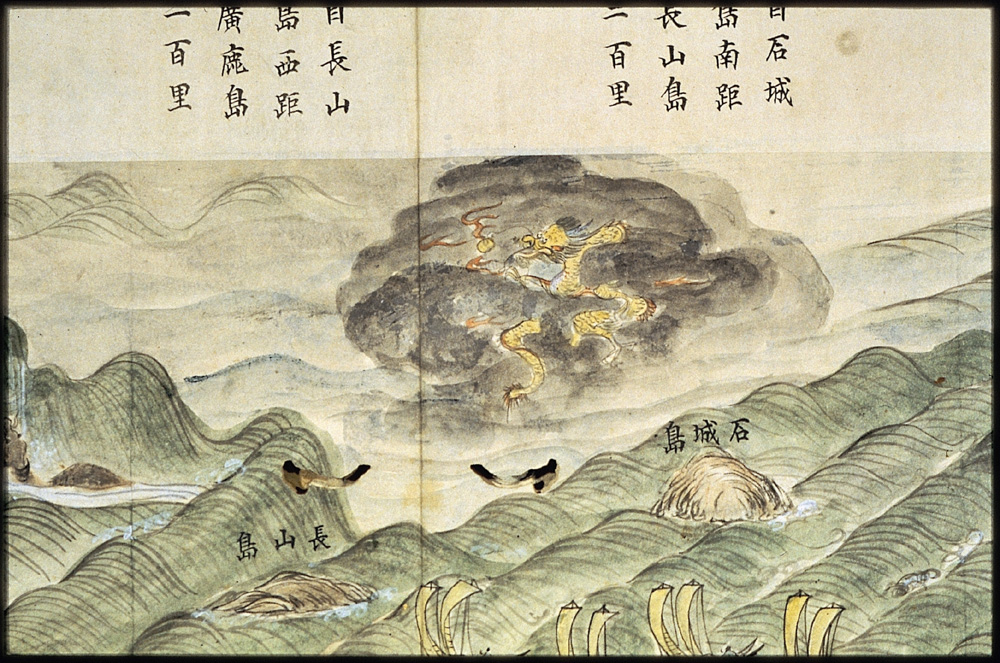 自石城
島南距
長山島
二百里
自長山
島西距
廣鹿島
一百里
石城島
長山島